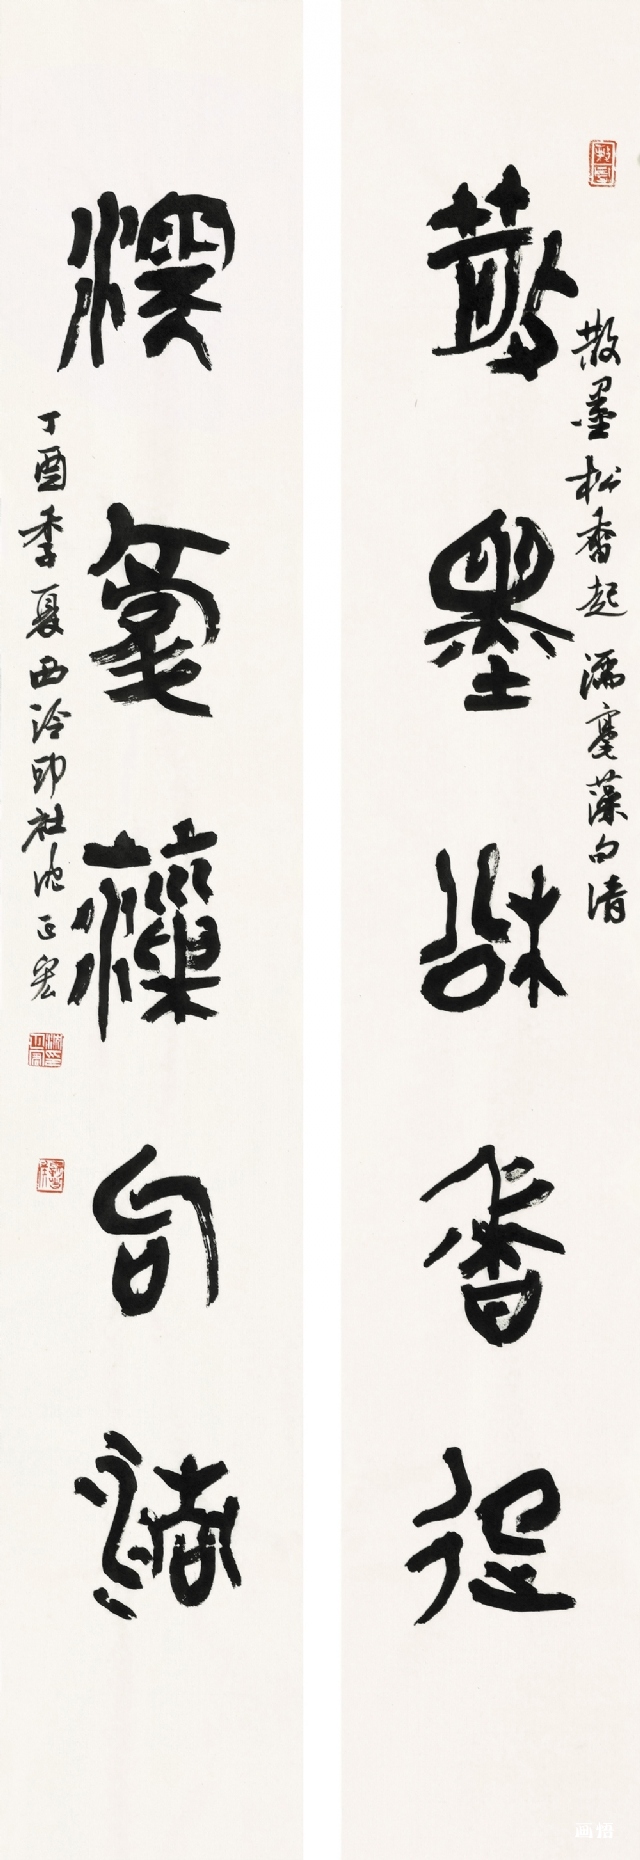 散墨松香起
散墨松香起濡毫藻句清
濡毫藻句清
丁酉季夏西泠印社沈正宏
画悟